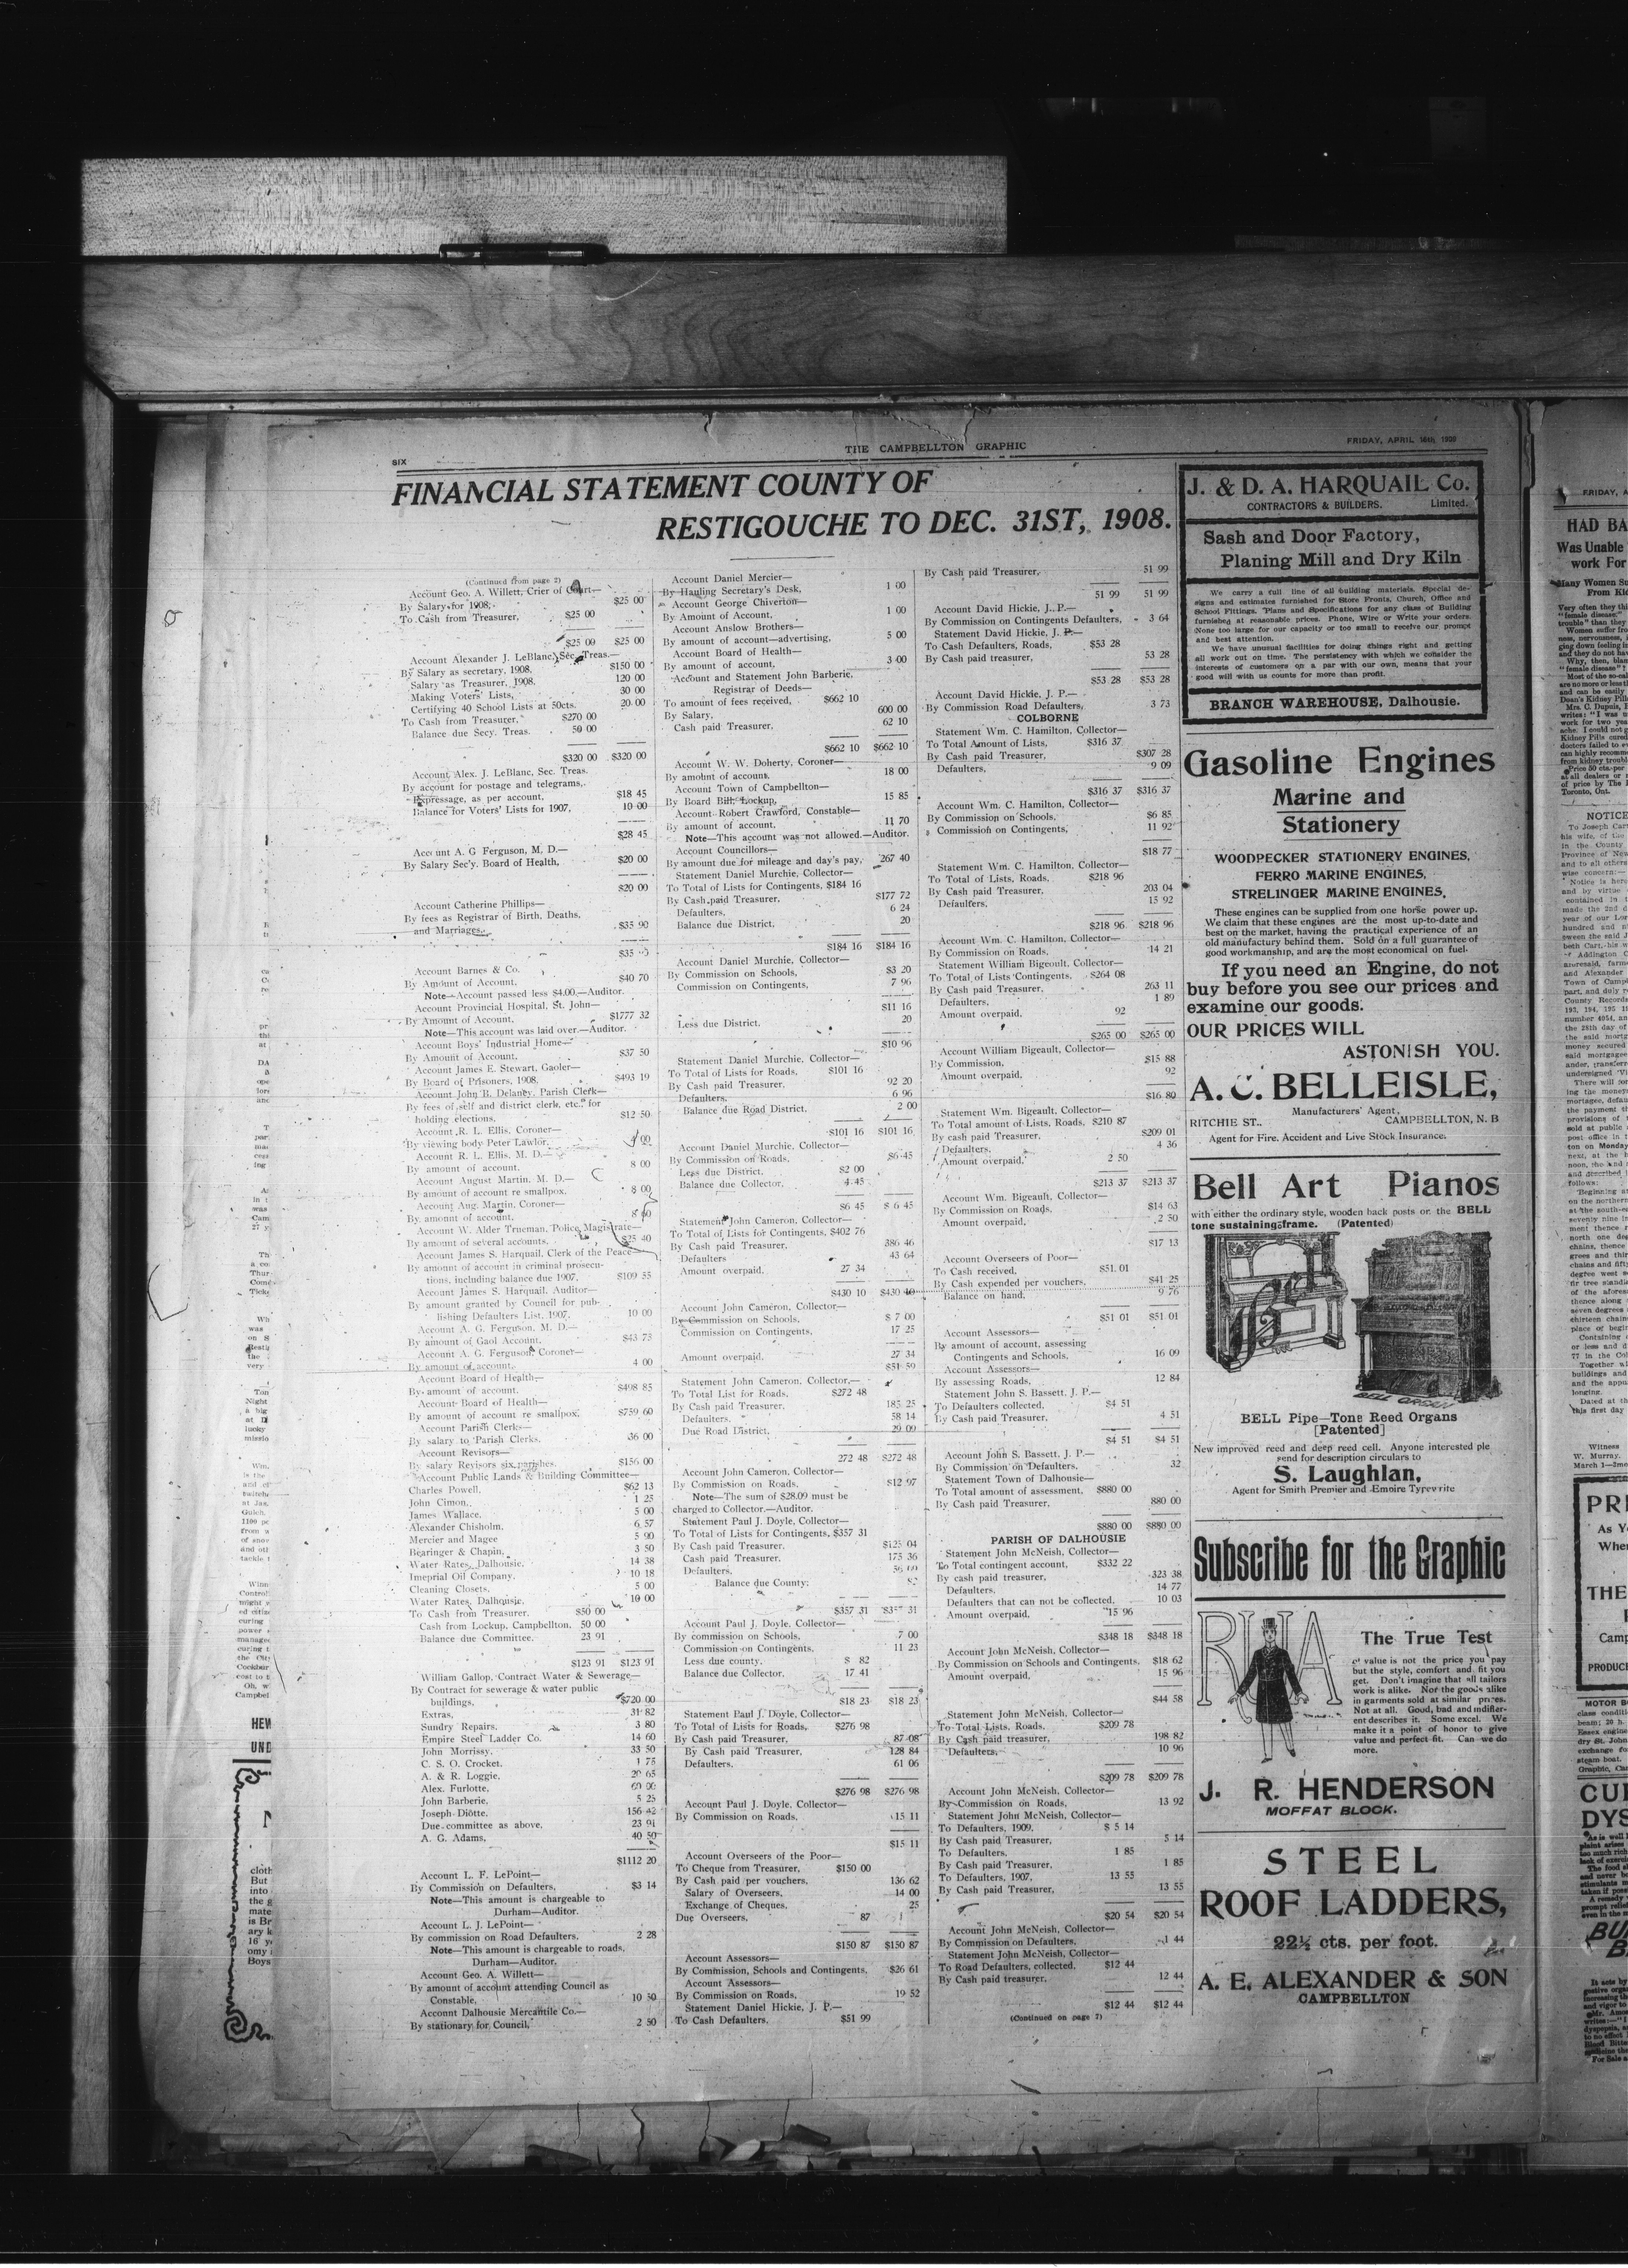 SIX
THE CAMPBELLTON GRAPHIC
FRIDAY, APRIL 16th, 1909
FINANCIAL STATEMENT COUNTY OF
RESTIGOUCHE TO DEC. 31ST, 1908.
(Continued from page 2)
Account Geo. A. Willett, Crier of Court—
By Salary for 1908, $25 00
To Cash from Treasurer, $25 00
$25 00 $25 00
Account Alexander J. LeBlanc, Sec. Treas.—
By Salary as secretary, 1908, $150 00
Salary as Treasurer, 1908, 120 00
Making Voters' Lists, 30 00
Certifying 40 School Lists at 50cts. 20 00
To Cash from Treasurer, $270 00
Balance due Secy. Treas. 50 00
$320 00 $320 00
Account Alex. J. LeBlanc, Sec. Treas.
By account for postage and telegrams,
Expressage, as per account, $18 45
Balance for Voters' Lists for 1907, 10 00
$28 45
Account A. G Ferguson, M. D.—
By Salary Sec'y. Board of Health, $20 00
$20 00
Account Catherine Phillips—
By fees as Registrar of Birth, Deaths,
and Marriages, $35 90
Account Barnes & Co.
By Amount of Account, $40 70
Note—Account passed less $4.00.—Auditor.
Account Provincial Hospital, St. John—
By Amount of Account, $1777 32
Note—This account was laid over.—Auditor.
Account Boys' Industrial Home—
By Amount of Account, $37 50
Account James E. Stewart, Gaoler—
By Board of Prisoners, 1908, $493 19
Account John B. Delaney, Parish Clerk—
By fees of self and district clerk, etc., for
holding elections, $12 50
Account R. L. Ellis, Coroner—
By viewing body Peter Lawlor,
Account R. L. Ellis, M. D.—
By amount of account, 8 00
Account August Martin, M. D.—
By amount of account re smallpox, 8 00
Account Aug. Martin, Coroner—
By amount of account,
Account W. Alder Trueman, Police Magistrate—
By amount of several accounts, $25 40
Account James S. Harquail, Clerk of the Peace
By amount of account in criminal prosecu-
tions, including balance due 1907, $109 55
Account James S. Harquail, Auditor—
By amount granted by Council for pub-
lishing Defaulters List, 1907, 10 00
Account A. G. Ferguson, M. D.—
By amount of Gaol Account, $43 75
Account A. G. Ferguson, Coroner—
By amount of account, 4 00
Account Board of Health—
By amount of account, $498 85
Account Board of Health—
By amount of account re smallpox, $759 60
Account Parish Clerks—
By salary to Parish Clerks, 36 00
Account Revisors—
By salary Revisors six parishes, $156 00
Account Public Lands & Building Committee—
Charles Powell, $62 13
John Cimon, 1 25
James Wallace, 5 00
Alexander Chisholm, 6 57
Mercier and Magee 5 90
Bearinger & Chapin, 3 50
Water Rates, Dalhousie, 14 38
Imeprial Oil Company, 10 18
Cleaning Closets, 5 00
Water Rates, Dalhousie, 10 00
To Cash from Treasurer, $50 00
Cash from Lockup, Campbellton, 50 00
Balance due Committee, 23 91
$123 91 $123 91
William Gallop, Contract Water & Sewerage—
By Contract for sewerage & water public
buildings, $720 00
Extras, 31 82
Sundry Repairs, 3 80
Empire Steel Ladder Co. 14 60
John Morrissy, 33 50
C. S. O. Crocket, 1 75
A. & R. Loggie, 20 65
Alex. Furlotte,
John Barberie, 5 25
Joseph Diotte, 156 42
Due committee as above, 23 91
A. G. Adams, 40 50
$1112 20
Account L. F. LePoint—
By Commission on Defaulters, $3 14
Note—This amount is chargeable to
Durham—Auditor.
Account L. J. LePoint—
By commission on Road Defaulters, 2 28
Note—This amount is chargeable to roads,
Durham—Auditor.
Account Geo. A. Willett—
By amount of account attending Council as
Constable, 10 50
Account Dalhousie Mercantile Co.—
By stationary for Council, 2 50
Account Daniel Mercier—
By Hauling Secretary's Desk, 1 00
Account George Chiverton—
By Amount of Account, 1 00
Account Anslow Brothers—
By amount of account—advertising, 5 00
Account Board of Health—
By amount of account, 3 00
Account and Statement John Barberie,
Registrar of Deeds—
To amount of fees received, $662 10
By Salary, 600 00
Cash paid Treasurer, 62 10
$662 10 $662 10
Account W. W. Doherty, Coroner—
By amount of account, 18 00
Account Town of Campbellton—
By Board Bill, Lockup, 15 85
Account Robert Crawford, Constable—
By amount of account, 11 70
Note—This account was not allowed.—Auditor.
Account Councillors—
By amount due for mileage and day's pay, 267 40
Statement Daniel Murchie, Collector—
To Total of Lists for Contingents, $184 16
By Cash paid Treasurer, $177 72
Defaulters, 6 24
Balance due District, 20
$184 16 $184 16
Account Daniel Murchie, Collector—
By Commission on Schools, $3 20
Commission on Contingents, 7 96
$11 16
Less due District, 20
$10 96
Statement Daniel Murchie, Collector—
To Total of Lists for Roads, $101 16
By Cash paid Treasurer, 92 20
Defaulters, 6 96
Balance due Road District, 2 00
$101 16 $101 16
Account Daniel Murchie, Collector—
By Commission on Roads, $6 45
Less due District, $2 00
Balance due Collector, 4 45
$6 45 $6 45
Statement John Cameron, Collector—
To Total of Lists for Contingents, $402 76
By Cash paid Treasurer, 386 46
Defaulters 43 64
Amount overpaid, 27 34
$430 10 $430 10
Account John Cameron, Collector—
By Commission on Schools, $ 7 00
Commission on Contingents, 17 25
Amount overpaid, 27 34
$51 59
Statement John Cameron, Collector,—
To Total List for Roads, $272 48
By Cash paid Treasurer, 185 25
Defaulters, 58 14
Due Road District, 29 09
272 48 $272 48
Account John Cameron, Collector—
By Commission on Roads, $12 97
Note—The sum of $28.09 must be
charged to Collector.—Auditor.
Statement Paul J. Doyle, Collector—
To Total of Lists for Contingents, $357 31
By Cash paid Treasurer, $125 04
Cash paid Treasurer, 175 36
Defaulters,
Balance due County,
$357 31 $357 31
Account Paul J. Doyle, Collector—
By commission on Schools, 7 00
Commission on Contingents, 11 23
Less due county, $ 82
Balance due Collector, 17 41
$18 23 $18 23
Statement Paul J. Doyle, Collector—
To Total of Lists for Roads, $276 98
By Cash paid Treasurer, 87 08
By Cash paid Treasurer, 128 84
Defaulters, 61 06
$276 98 $276 98
Account Paul J. Doyle, Collector—
By Commission on Roads, 15 11
$15 11
Account Overseers of the Poor—
To Cheque from Treasurer, $150 00
By Cash paid per vouchers, 136 62
Salary of Overseers, 14 00
Exchange of Cheques, 25
Due Overseers, 87
$150 87 $150 87
Account Assessors—
By Commission, Schools and Contingents, $26 61
Account Assessors—
By Commission on Roads, 19 52
Statement Daniel Hickie, J. P.—
To Cash Defaulters, $51 99
By Cash paid Treasurer, 51 99
51 99 51 99
Account David Hickie, J. P.—
By Commission on Contingents Defaulters, 3 64
Statement David Hickie, J. P.—
To Cash Defaulters, Roads, $53 28
By Cash paid treasurer, 53 28
$53 28 $53 28
Account David Hickie, J. P.—
By Commission Road Defaulters, 3 73
COLBORNE
Statement Wm. C. Hamilton, Collector—
To Total Amount of Lists, $316 37
By Cash paid Treasurer, $307 28
Defaulters, 9 09
$316 37 $316 37
Account Wm. C. Hamilton, Collector—
By Commission on Schools, $6 85
Commission on Contingents, 11 92
$18 77
Statement Wm. C. Hamilton, Collector—
To Total of Lists, Roads, $218 96
By Cash paid Treasurer, 203 04
Defaulters, 15 92
$218 96 $218 96
Account Wm. C. Hamilton, Collector—
By Commission on Roads, 14 21
Statement William Bigeault, Collector—
To Total of Lists Contingents, $264 08
By Cash paid Treasurer, 263 11
Defaulters, 1 89
Amount overpaid, 92
$265 00 $265 00
Account William Bigeault, Collector—
By Commission, $15 88
Amount overpaid, 92
$16 80
Statement Wm. Bigeault, Collector—
To Total amount of Lists, Roads, $210 87
By cash paid Treasurer, $209 01
Defaulters, 4 36
Amount overpaid, 2 50
$213 37 $213 37
Account Wm. Bigeault, Collector—
By Commission on Roads, $14 63
Amount overpaid, 2 50
$17 13
Account Overseers of Poor—
To Cash received, $51 01
By Cash expended per vouchers, $41 25
Balance on hand, 9 76
$51 01 $51 01
Account Assessors—
By amount of account, assessing
Contingents and Schools, 16 09
Account Assessors—
By assessing Roads, 12 84
Statement John S. Bassett, J. P.—
To Defaulters collected, $4 51
By Cash paid Treasurer, 4 51
$4 51 $4 51
Account John S. Bassett, J. P.—
By Commission on Defaulters, 32
Statement Town of Dalhousie—
To Total amount of assessment, $880 00
By Cash paid Treasurer, 880 00
$880 00 $880 00
PARISH OF DALHOUSIE
Statement John McNeish, Collector—
To Total contingent account, $332 22
By cash paid treasurer, 323 38
Defaulters, 14 77
Defaulters that can not be collected, 10 03
Amount overpaid, 15 96
$348 18 $348 18
Account John McNeish, Collector—
By Commission on Schools and Contingents, $18 62
Amount overpaid, 15 96
$44 58
Statement John McNeish, Collector—
To Total Lists, Roads, $209 78
By Cash paid treasurer, 198 82
Defaulters, 10 96
$209 78 $209 78
Account John McNeish, Collector—
By Commission on Roads, 13 92
Statement John McNeish, Collector—
To Defaulters, 1909, $ 5 14
By Cash paid Treasurer, 5 14
To Defaulters, 1 85
By Cash paid Treasurer, 1 85
To Defaulters, 1907, 13 55
By Cash paid Treasurer, 13 55
$20 54 $20 54
Account John McNeish, Collector—
By Commission on Defaulters, 1 44
Statement John McNeish, Collector—
To Road Defaulters, collected, $12 44
By Cash paid treasurer, 12 44
$12 44 $12 44
(Continued on page 7)
J. & D. A. HARQUAIL Co.
CONTRACTORS & BUILDERS. Limited.
Sash and Door Factory,
Planing Mill and Dry Kiln
We carry a full line of all building materials. Special de-
signs and estimates furnished for Store Fronts, Church, Office and
School Fittings. Plans and Specifications for any class of Building
furnished at reasonable prices. Phone, Wire or Write your orders.
None too large for our capacity or too small to receive our prompt
and best attention.
We have unusual facilities for doing things right and getting
all work out on time. The persistency with which we consider the
interests of customers on a par with our own, means that your
good will with us counts for more than profit.
BRANCH WAREHOUSE, Dalhousie.
Gasoline Engines
Marine and
Stationery
WOODPECKER STATIONERY ENGINES,
FERRO MARINE ENGINES,
STRELINGER MARINE ENGINES,
These engines can be supplied from one horse power up.
We claim that these engines are the most up-to-date and
best on the market, having the practical experience of an
old manufactory behind them. Sold on a full guarantee of
good workmanship, and are the most economical on fuel.
If you need an Engine, do not
buy before you see our prices and
examine our goods.
OUR PRICES WILL
ASTONISH YOU.
A. C. BELLEISLE,
Manufacturers' Agent,
RITCHIE ST.. CAMPBELLTON, N. B
Agent for Fire, Accident and Live Stock Insurance.
Bell Art Pianos
with either the ordinary style, wooden back posts or the BELL
tone sustaining frame. (Patented)
BELL ORGAN
BELL Pipe—Tone Reed Organs
[Patented]
New improved reed and deep reed cell. Anyone interested ple
send for description circulars to
S. Laughlan,
Agent for Smith Premier and Emoire Typewrite
Subscribe for the Graphic
The True Test
of value is not the price you pay
but the style, comfort and fit you
get. Don't imagine that all tailors
work is alike. Nor the goods alike
in garments sold at similar prices.
Not at all. Good, bad and indiffer-
ent describes it. Some excel. We
make it a point of honor to give
value and perfect fit. Can we do
more.
J. R. HENDERSON
MOFFAT BLOCK.
STEEL
ROOF LADDERS,
22½ cts. per foot.
A. E. ALEXANDER & SON
CAMPBELLTON
FRIDAY, A
HAD BA
Was Unable
work For
Many Women Su
From Kid
NOTICE